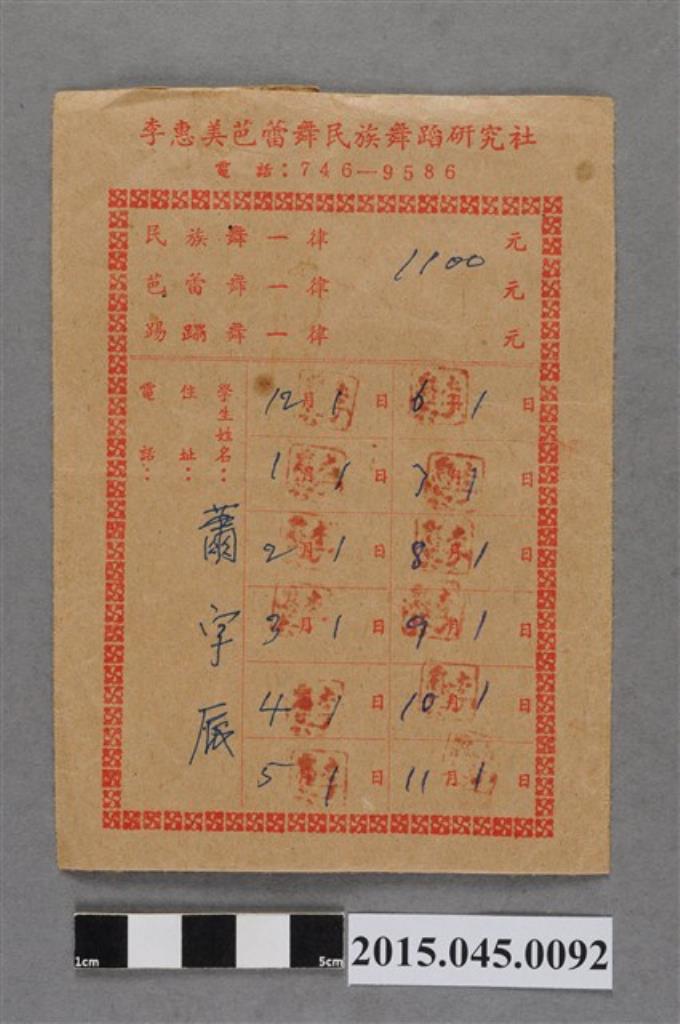 李惠美芭蕾舞民族舞蹈研究社
電話：746—9586
民族舞一律 元
1100
芭蕾舞一律 元
踢蹋舞一律 元
學生姓名：
蕭宇辰
住址：
電話：
12月1日 6月1日
1月1日 7月1日
2月1日 8月1日
3月1日 9月1日
4月1日 10月1日
5月1日 11月1日
1cm 5cm
2015.045.0092